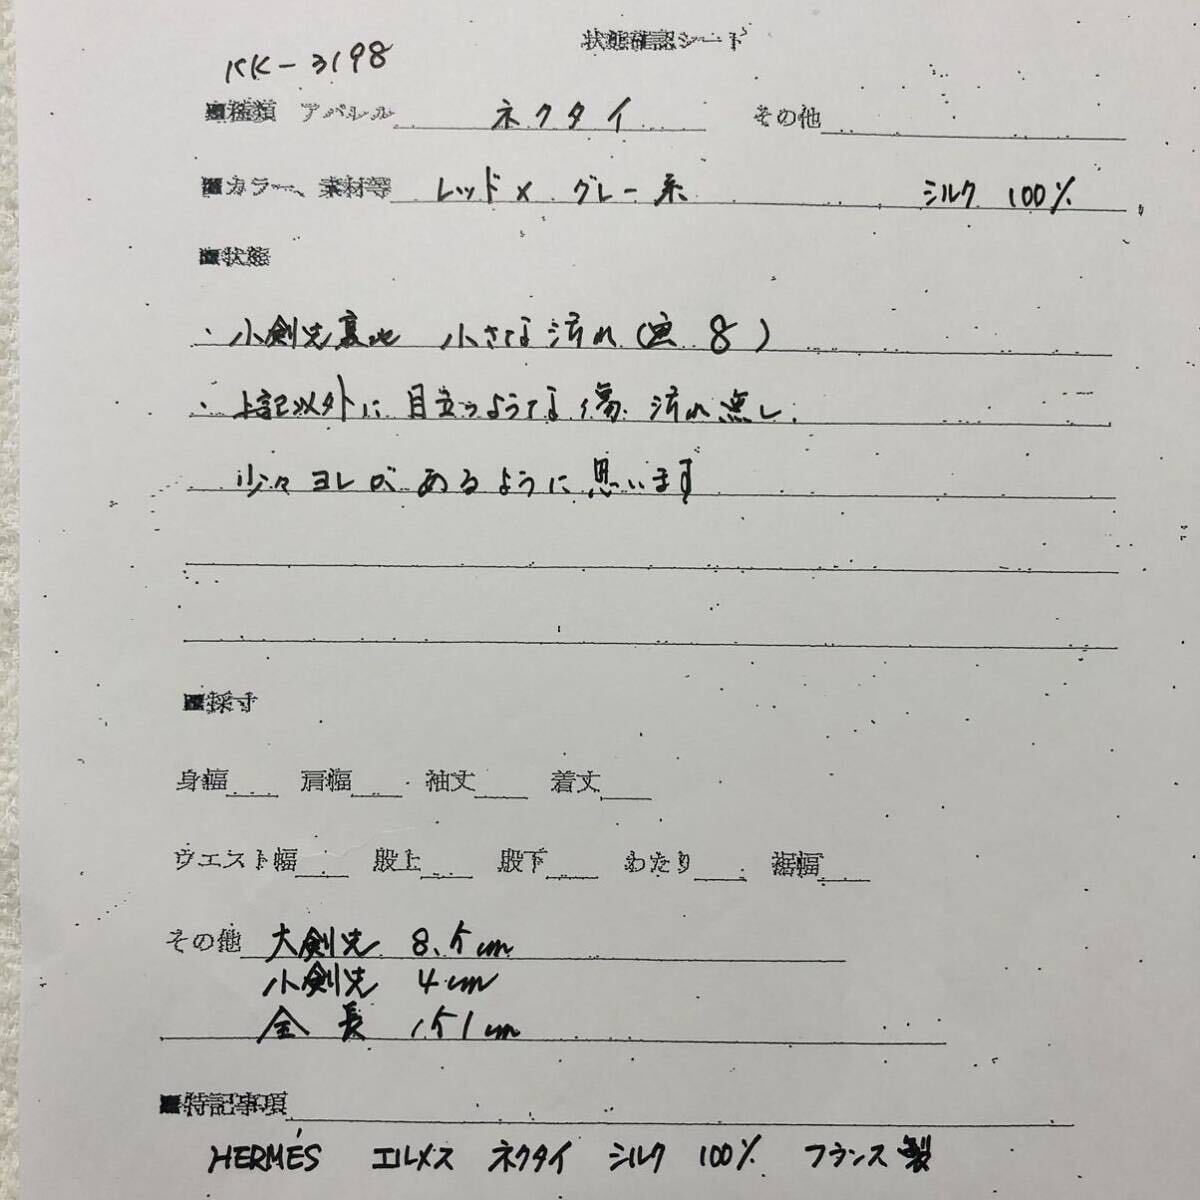 状態確認シート
KK-3198
■種類 アパレル ネクタイ その他
■カラー、素材等 レッド×グレー系 シルク 100%
■状態
・小剣先裏地 小さな汚れ(画 8)
・上記以外に目立つような傷、汚れ無し、
少々ヨレがあるように思います
■採寸
身幅 肩幅 袖丈 着丈
ウエスト幅 股上 股下 わたり 裾幅
その他 大剣先 8.5cm
小剣先 4cm
全長 151cm
■特記事項
HERMÉS エルメス ネクタイ シルク 100% フランス製